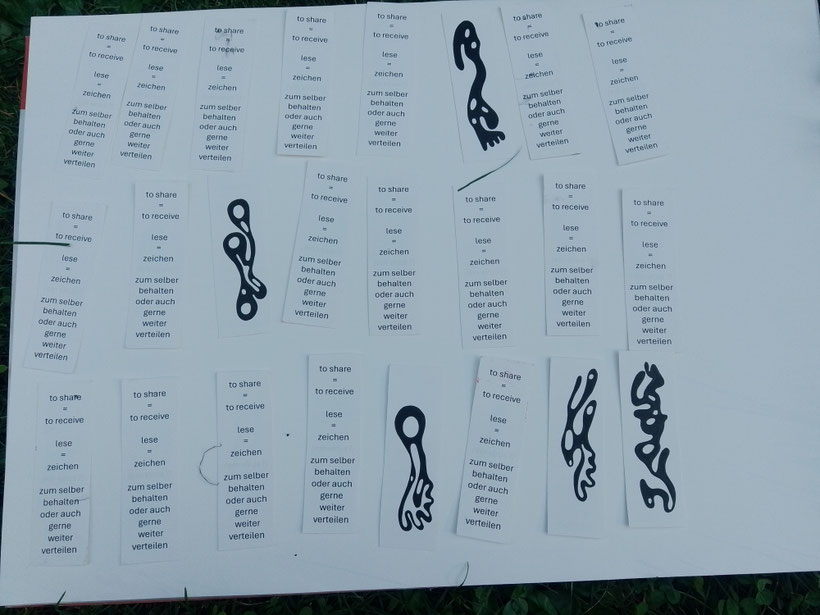 to share
=
to receive
lese
=
zeichen
zum selber
behalten
oder auch
gerne
weiter
verteilen
to share
=
to receive
lese
=
zeichen
zum selber
behalten
oder auch
gerne
weiter
verteilen
to share
=
to receive
lese
=
zeichen
zum selber
behalten
oder auch
gerne
weiter
verteilen
to share
=
to receive
lese
=
zeichen
zum selber
behalten
oder auch
gerne
weiter
verteilen
to share
=
to receive
lese
=
zeichen
zum selber
behalten
oder auch
gerne
weiter
verteilen
to share
=
to receive
lese
=
zeichen
zum selber
behalten
oder auch
gerne
weiter
verteilen
to share
=
to receive
lese
=
zeichen
zum selber
behalten
oder auch
gerne
weiter
verteilen
to share
=
to receive
lese
=
zeichen
zum selber
behalten
oder auch
gerne
weiter
verteilen
to share
=
to receive
lese
=
zeichen
zum selber
behalten
oder auch
gerne
weiter
verteilen
to share
=
to receive
lese
=
zeichen
zum selber
behalten
oder auch
gerne
weiter
verteilen
to share
=
to receive
lese
=
zeichen
zum selber
behalten
oder auch
gerne
weiter
verteilen
to share
=
to receive
lese
=
zeichen
zum selber
behalten
oder auch
gerne
weiter
verteilen
to share
=
to receive
lese
=
zeichen
zum selber
behalten
oder auch
gerne
weiter
verteilen
to share
=
to receive
lese
=
zeichen
zum selber
behalten
oder auch
gerne
weiter
verteilen
to share
=
to receive
lese
=
zeichen
zum selber
behalten
oder auch
gerne
weiter
verteilen
to share
=
to receive
lese
=
zeichen
zum selber
behalten
oder auch
gerne
weiter
verteilen
to share
=
to receive
lese
=
zeichen
zum selber
behalten
oder auch
gerne
weiter
verteilen
to share
=
to receive
lese
=
zeichen
zum selber
behalten
oder auch
gerne
weiter
verteilen
to share
=
to receive
lese
=
zeichen
zum selber
behalten
oder auch
gerne
weiter
verteilen